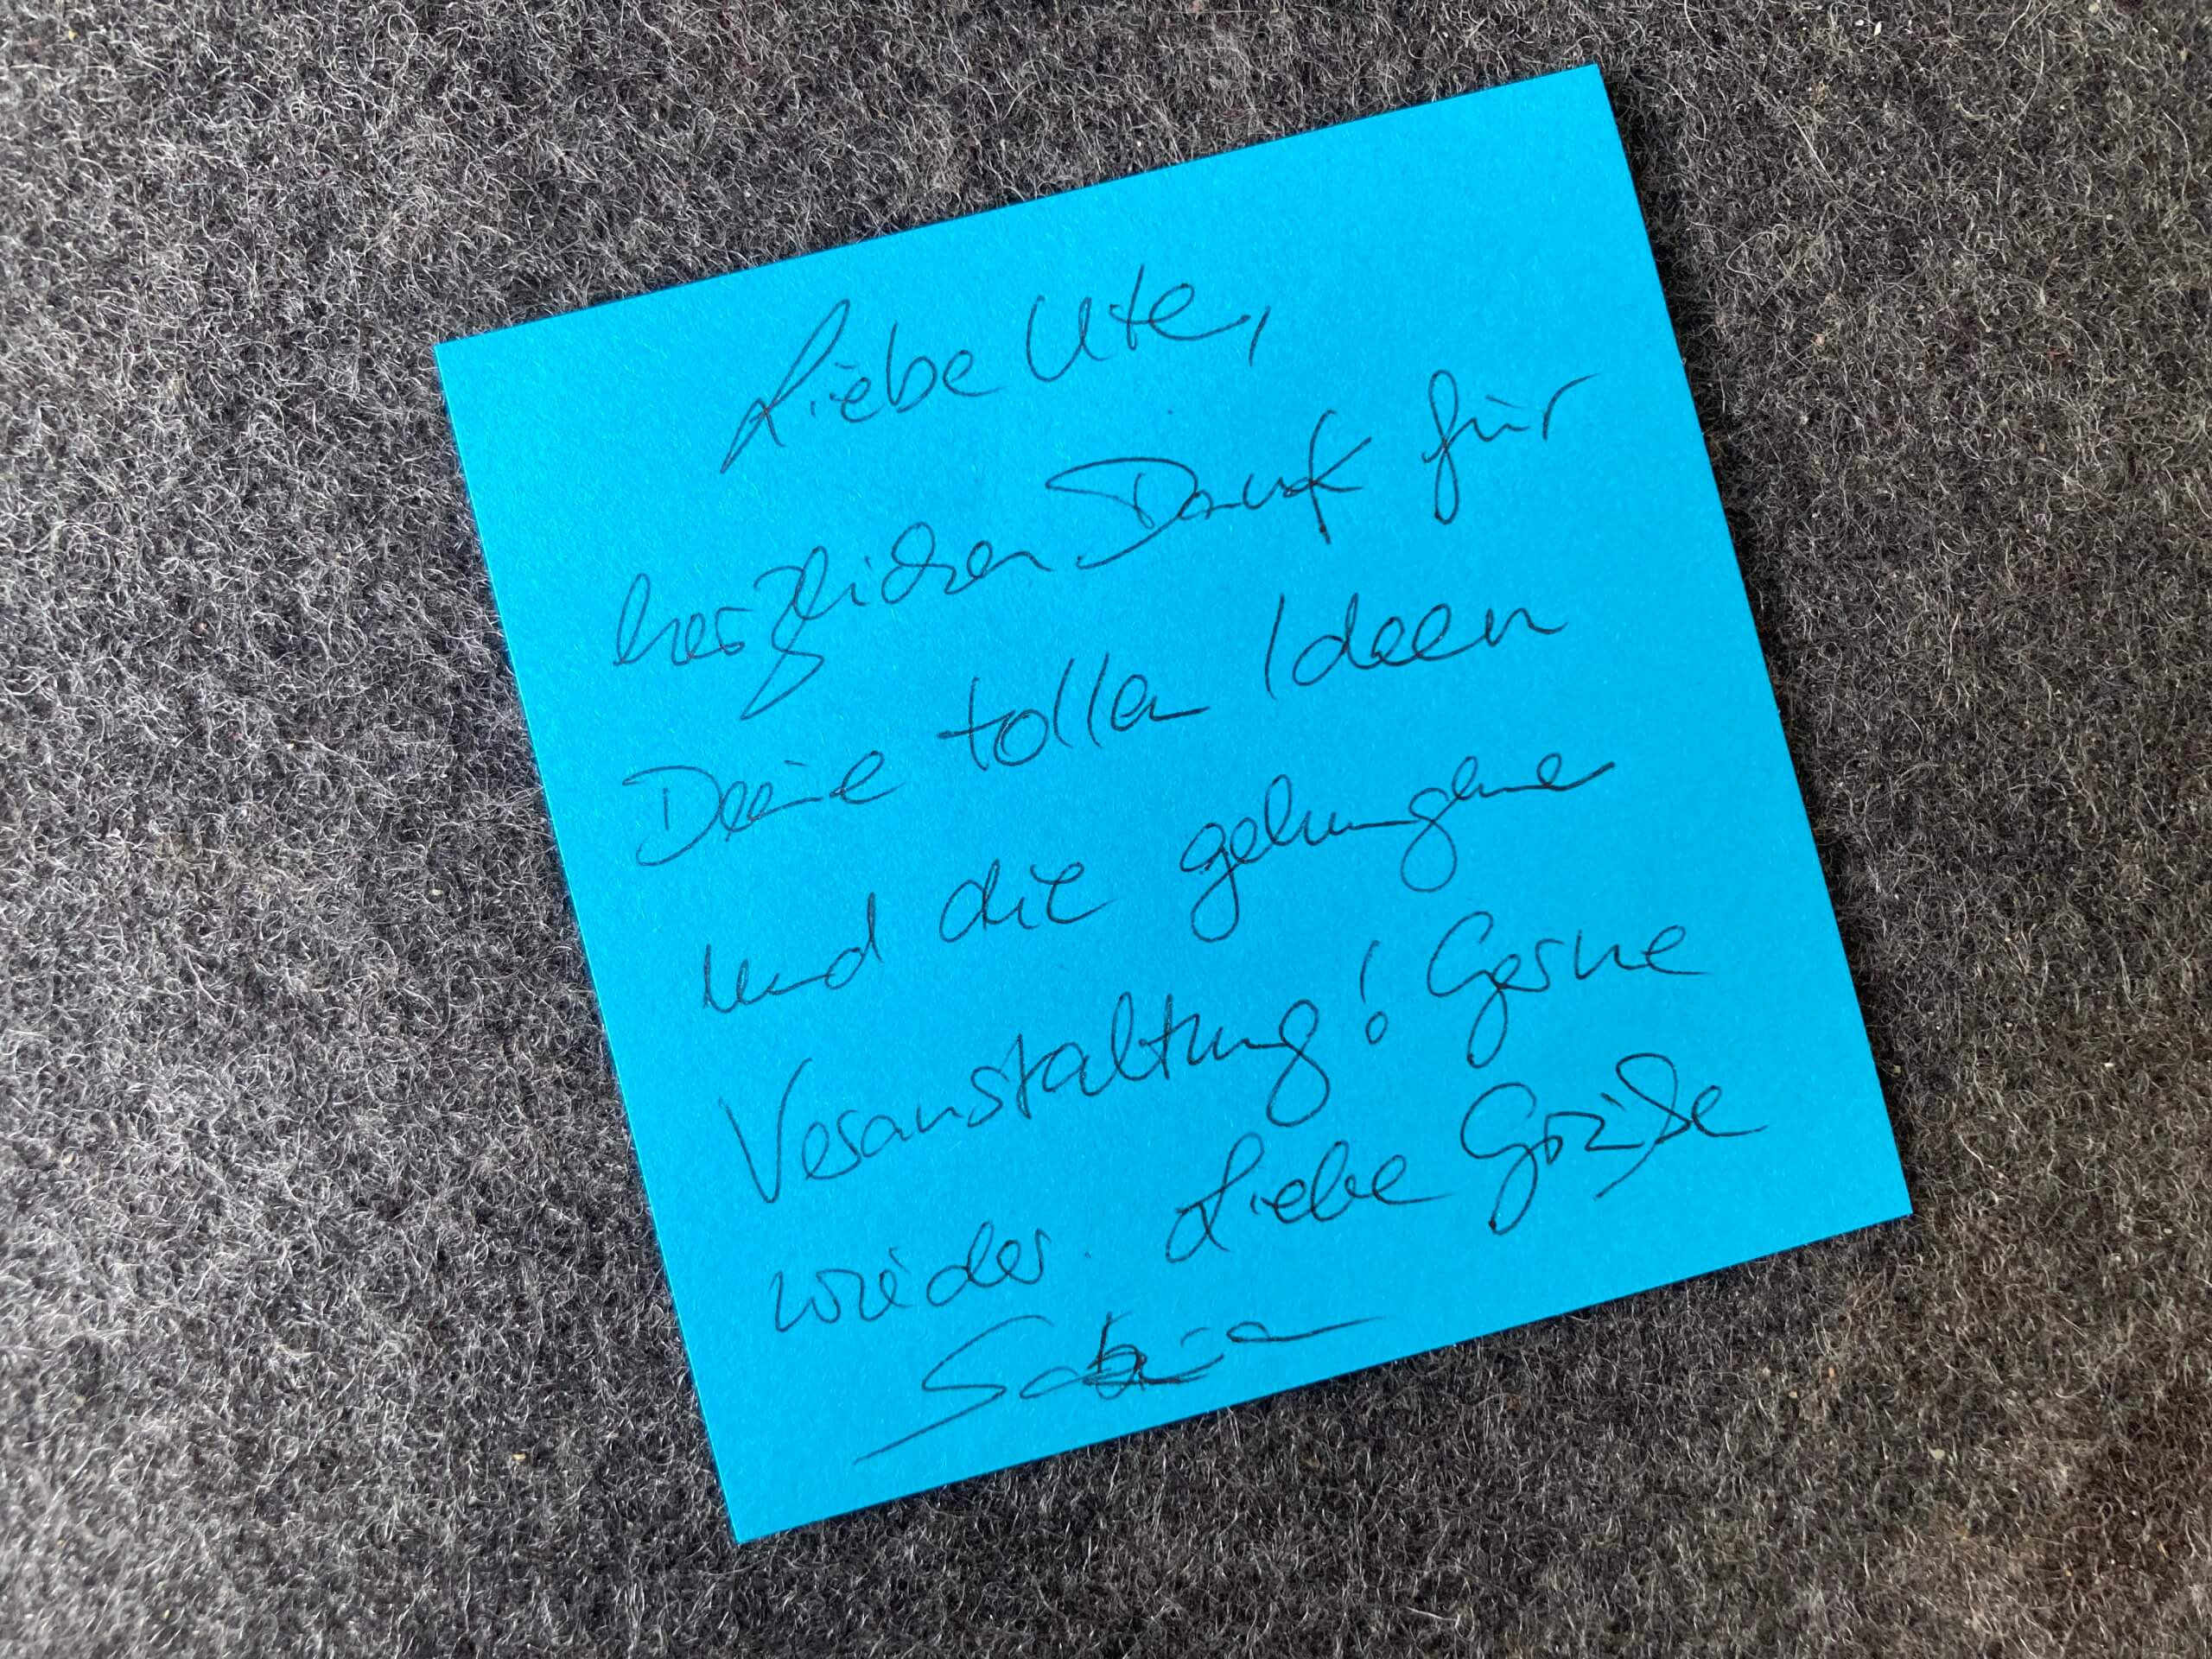 Liebe Ute,
herzlichen Dank für
Deine tollen Ideen
und die gelungene
Veranstaltung! Gerne
wieder. Liebe Grüße